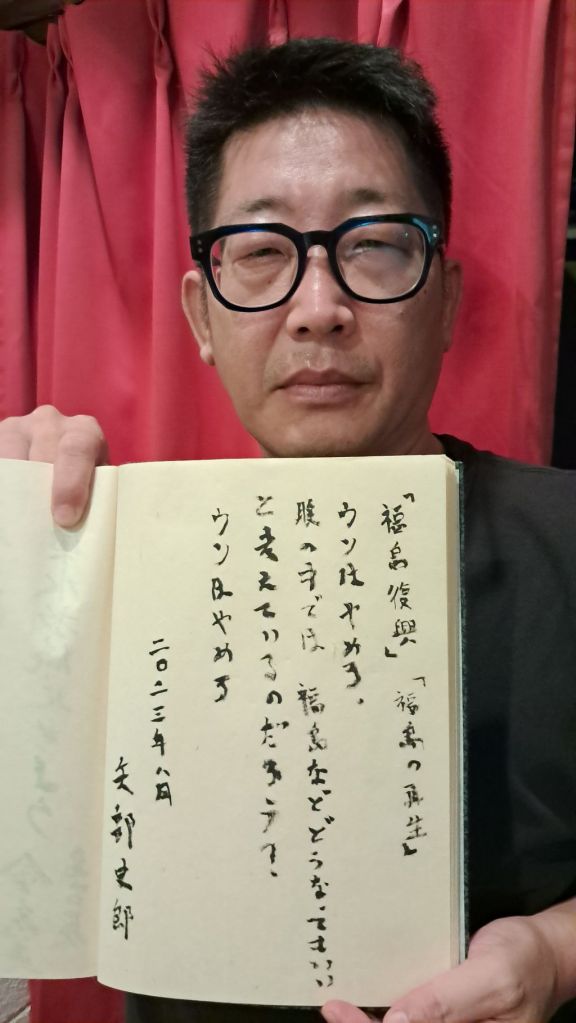 「福島復興」「福島の再生」
ウソはやめろ。
腹の中では 福島などどうなってもいい
と考えているのだろうが。
ウソはやめろ
二〇二三年八月
矢部史郎